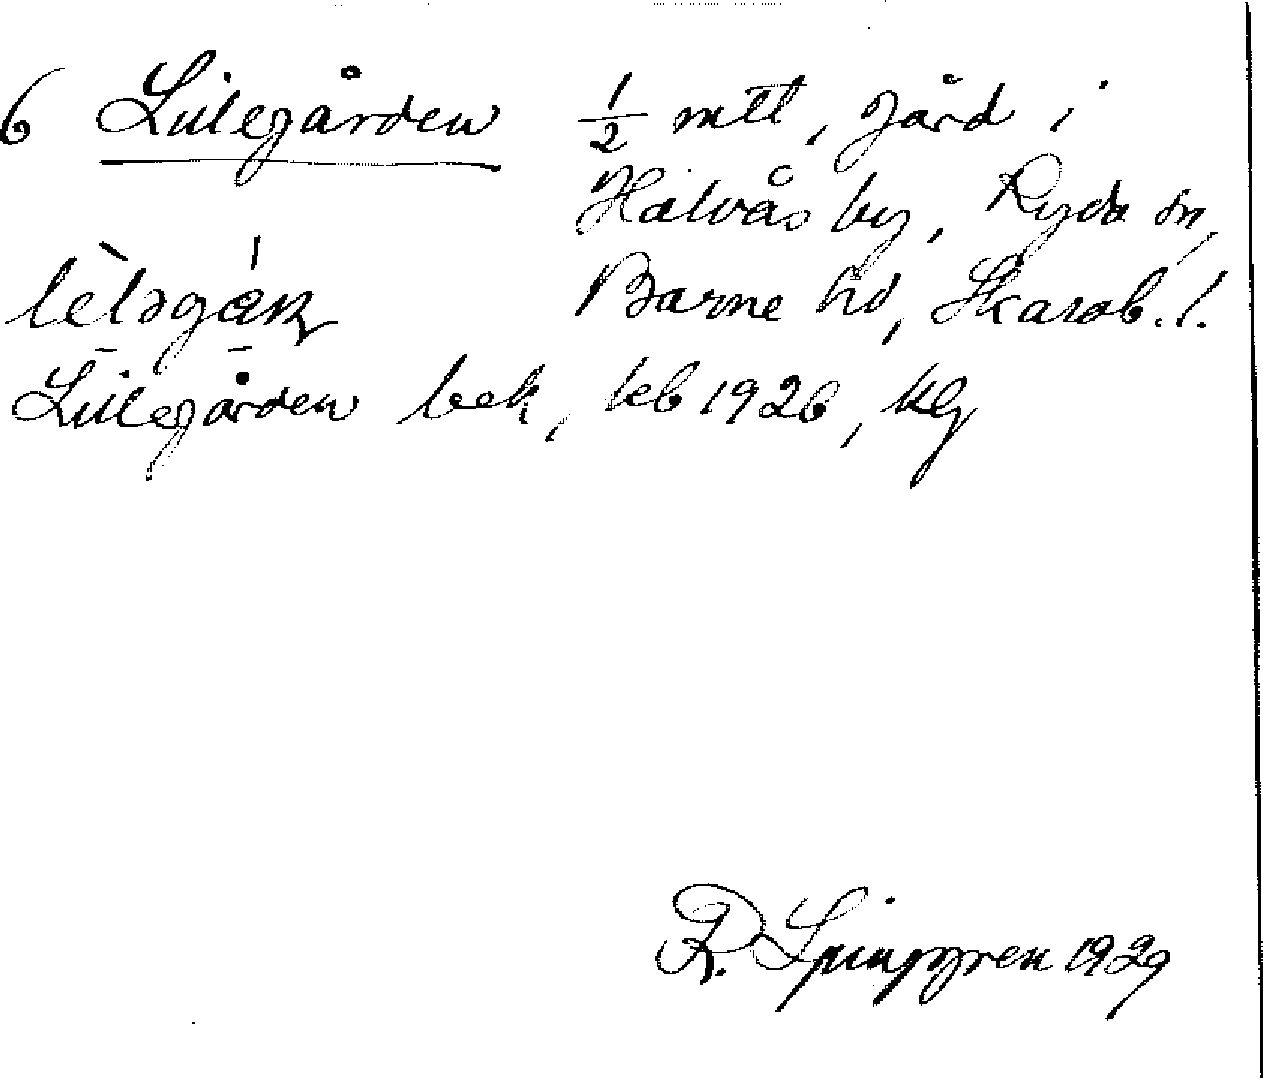 6 Lillegården 1/2 mtl, gård i
Halvås by, Ryda sn,
Barne hd, Skarab. l.
Lillegården bek, 1926,
R. Ljunggren 1929